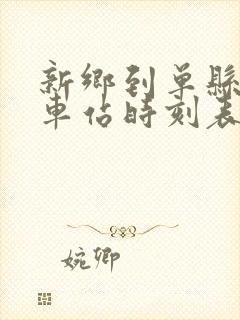 新鄉到單縣
車佔時刻表
婉卿